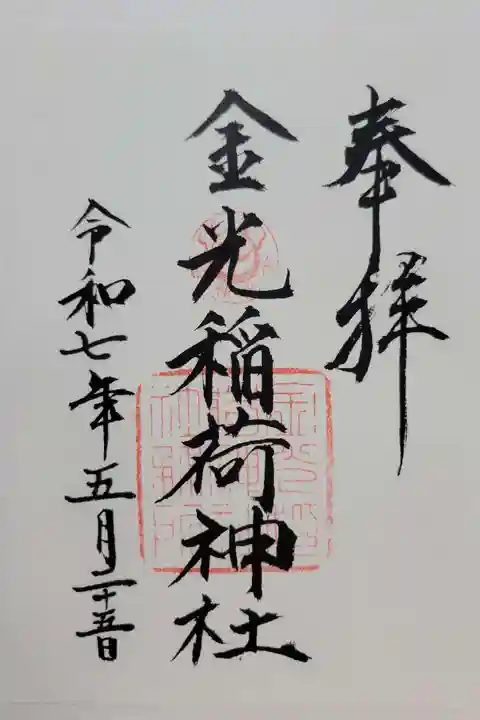 奉拝
金光稲荷神社
令和七年五月二十五日